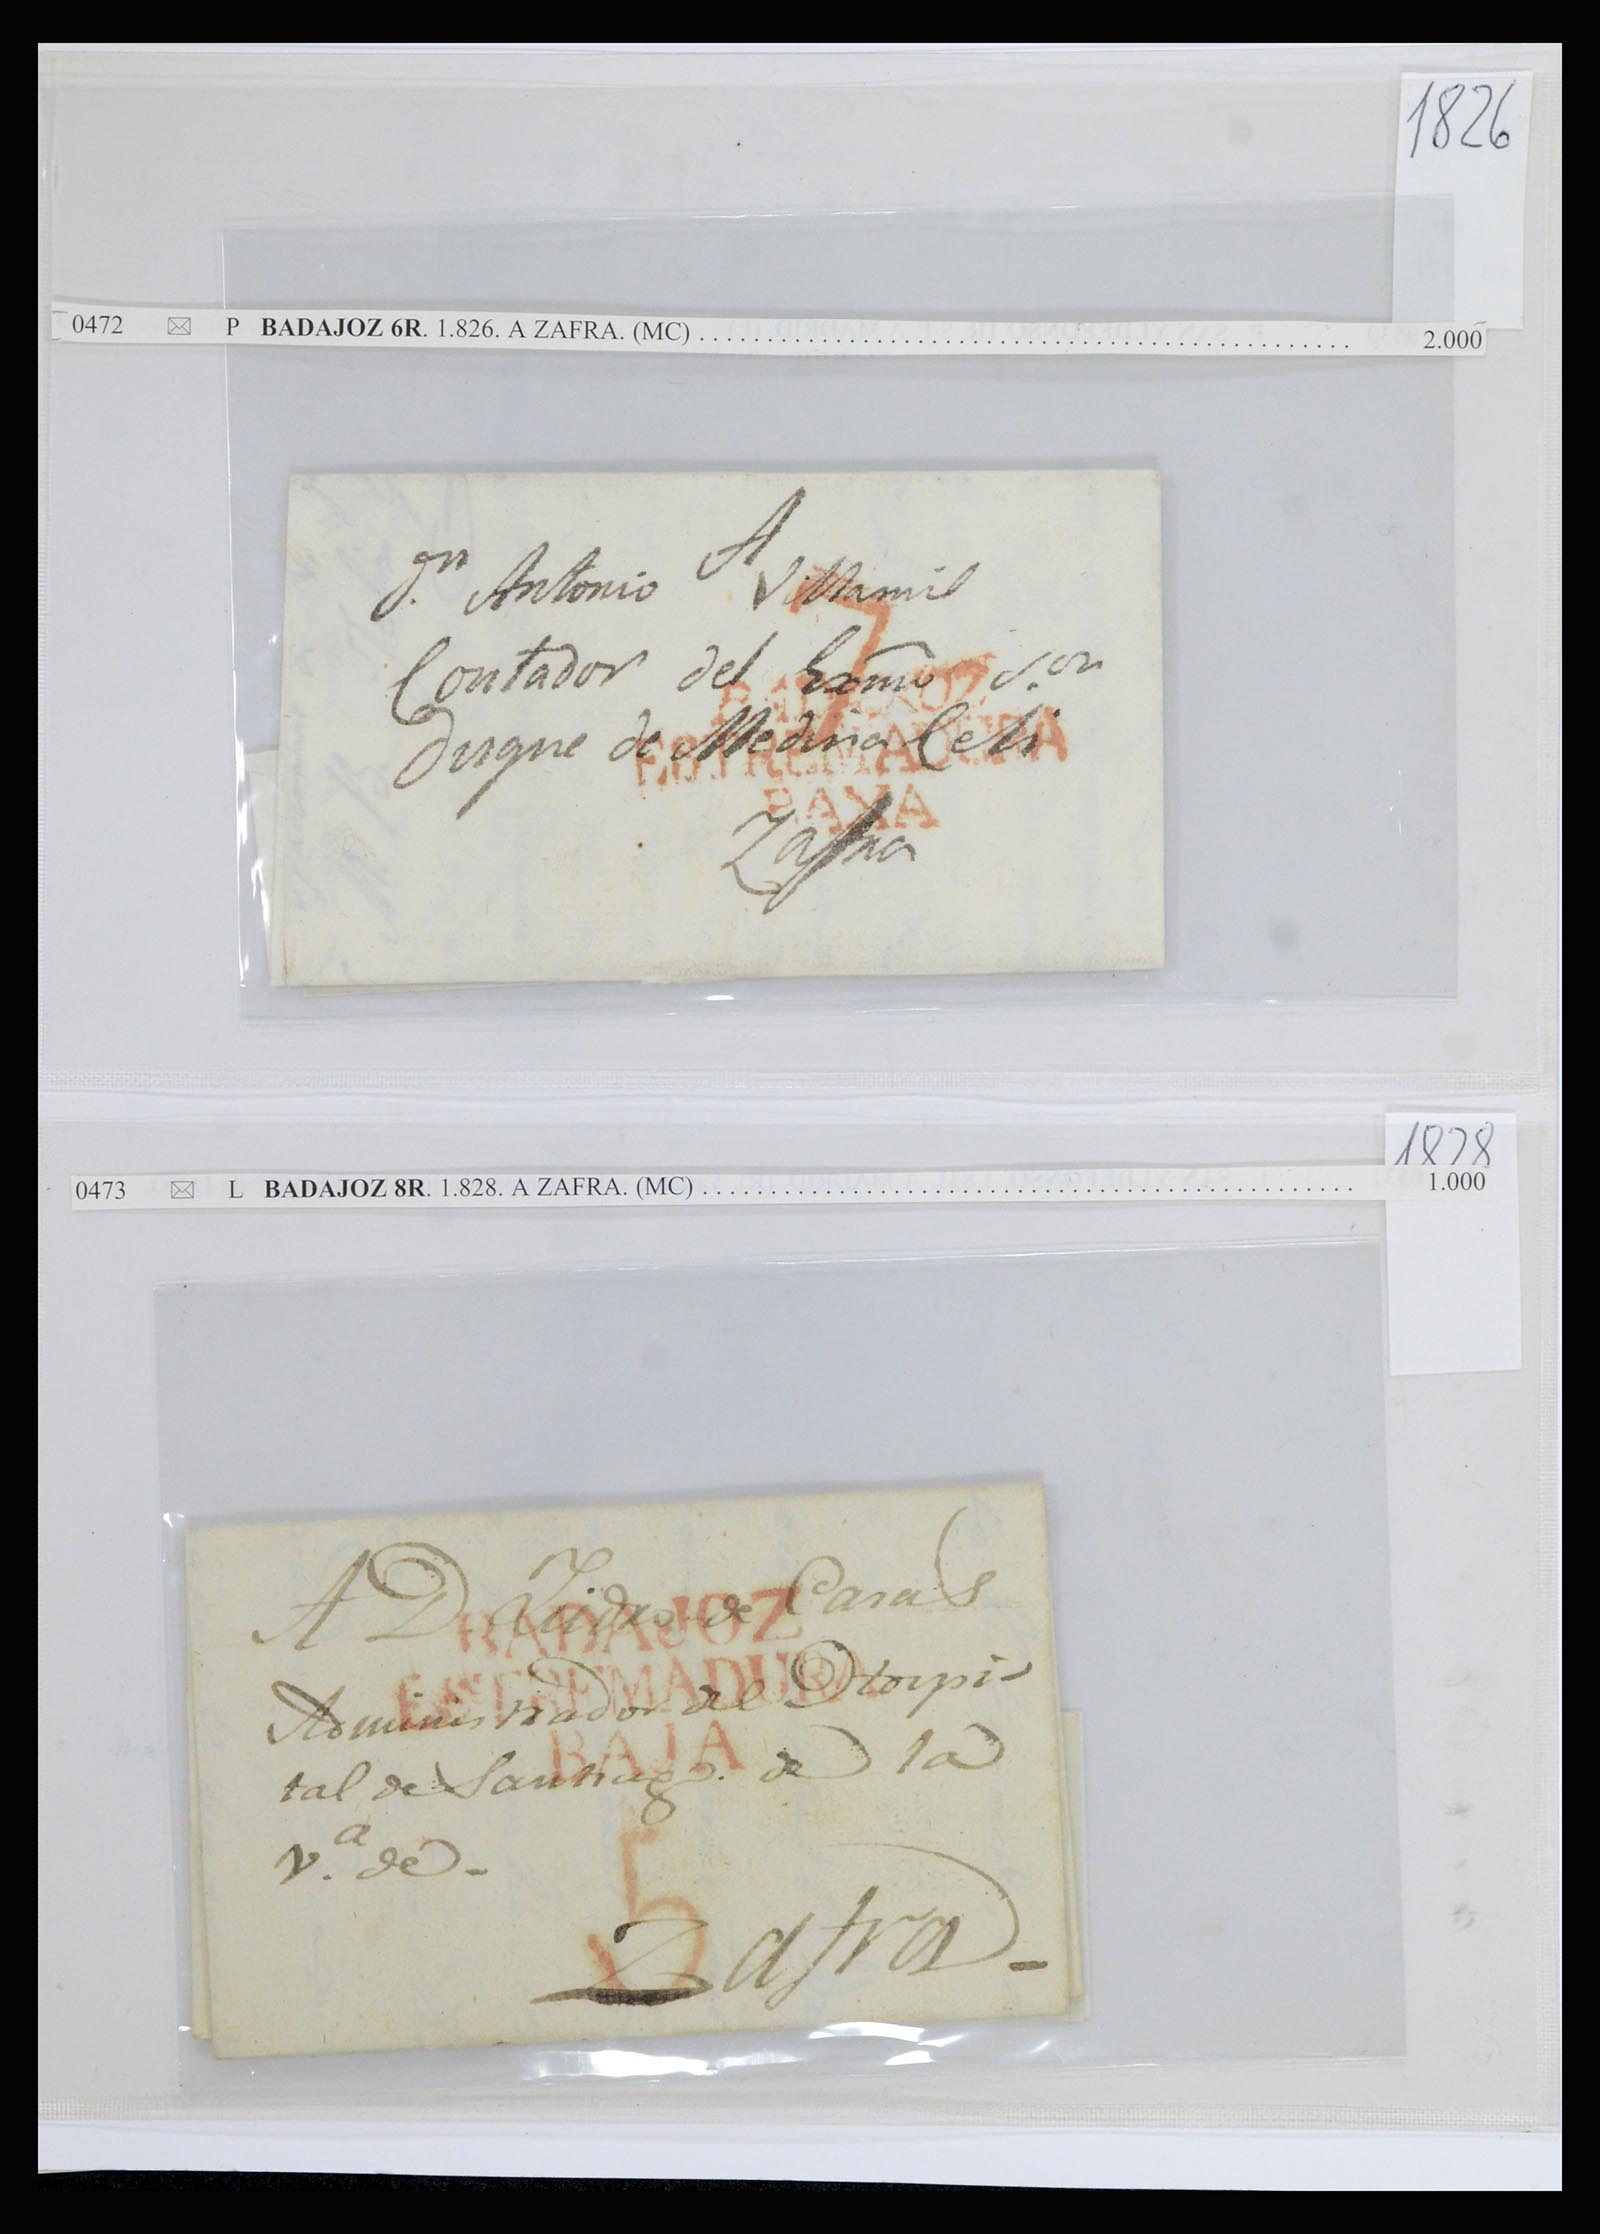 1826
0472 ✉ P BADAJOZ 6R. 1.826. A ZAFRA. (MC) 2.000
A
Dn Antonio Villamil
7
Contador del Exmo S.or
BADAJOZ
Duque de Medina Celi
ESTREMADURA
BAXA
Zafra
1828
0473 ✉ L BADAJOZ 8R. 1.828. A ZAFRA. (MC) 1.000
A D. Ysidro de Casas
BADAJOZ
ESTREMADURA
Administrador del Hospi-
BAJA
tal de Santiago. de la
v.a de -
5
Zafra -